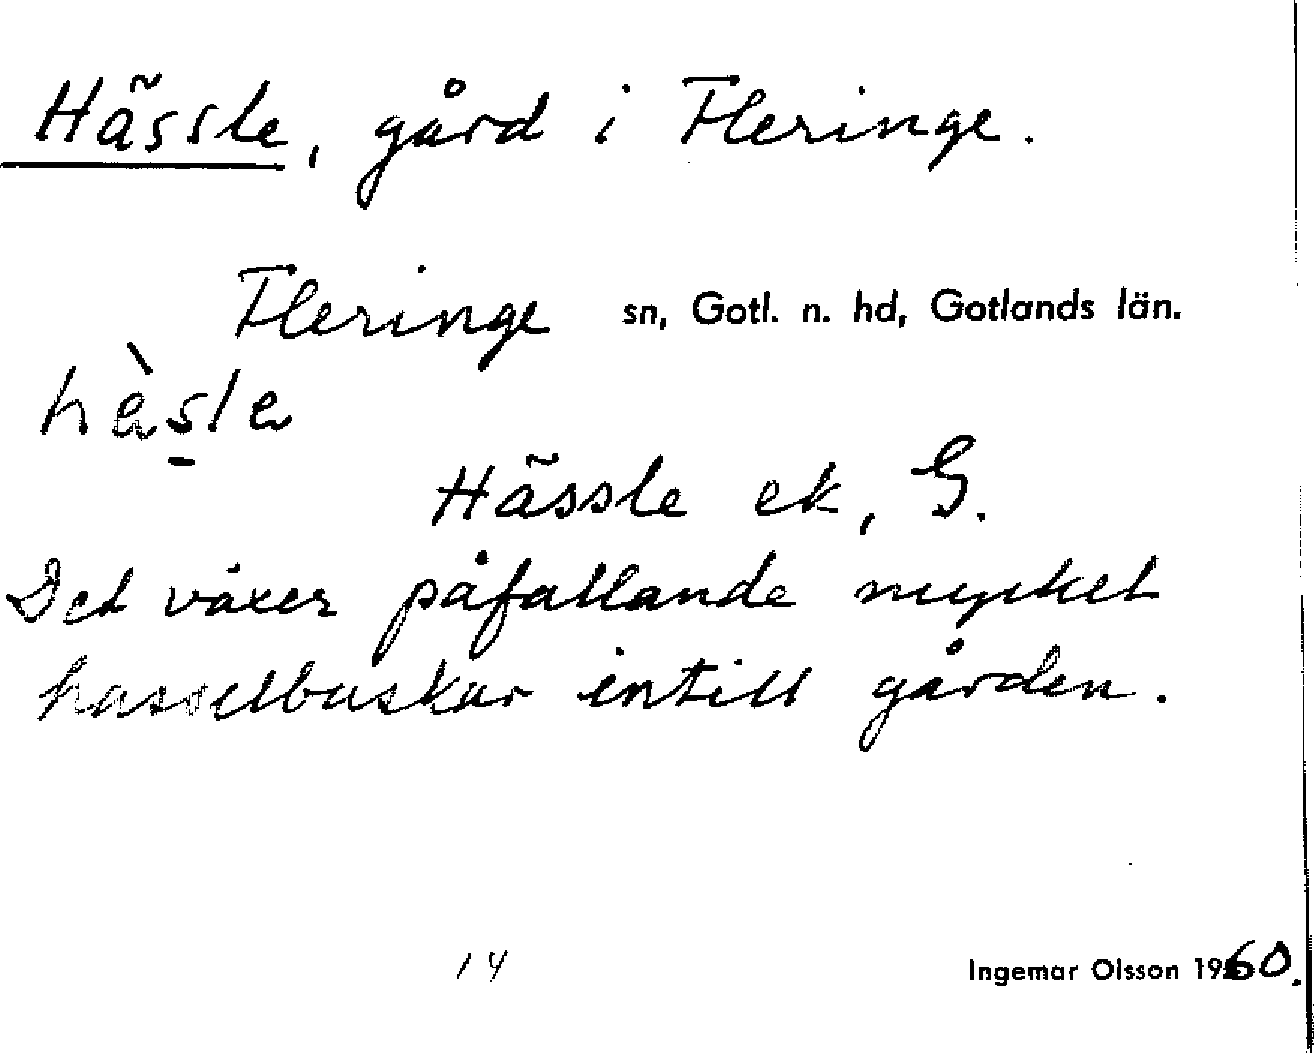 Hässle, gård i Fleringe.
Fleringe sn, Gotl. n. hd, Gotlands län.
hèsla
Hässle ek, G.
Det växer påfallande mycket
hasselbuskar intill gården.
14 Ingemar Olsson 1960.